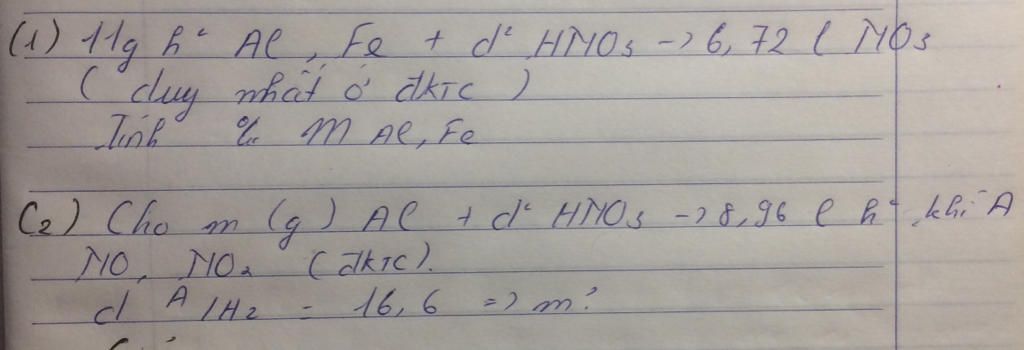 (1) 11g h² Al, Fe + d² HNO3 -> 6,72 l NO3
( duy nhất ở đktc )
Tính % m Al, Fe
(2) Cho m (g) Al + d² HNO3 -> 8,96 l h² khí A
NO, NO2 (đktc).
d A/H2 = 16,6 => m?